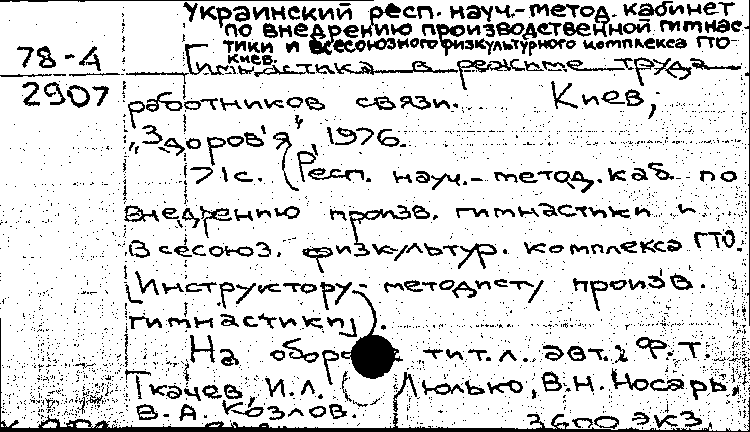 Украинский респ. науч.-метод. кабинет
по внедрению производственной гимнас-
тики и всесоюзного физкультурного комплекса ГТО
Киев.
78-4
Гимнастика в режиме труда
2907
работников связи. Киев,
„Здоров'я", 1976.
71с. (Респ. науч.-метод. каб. по
внедрению произв. гимнастики и
Всесоюз. физкультур. комплекса ГТО.
Инструктору-методисту произв.
гимнастики).
На обороте тит.л. авт.: Ф.Т.
Ткачев, И.Л. Люлько, В.Н. Носарь,
В.А. Козлов.
3600 экз.